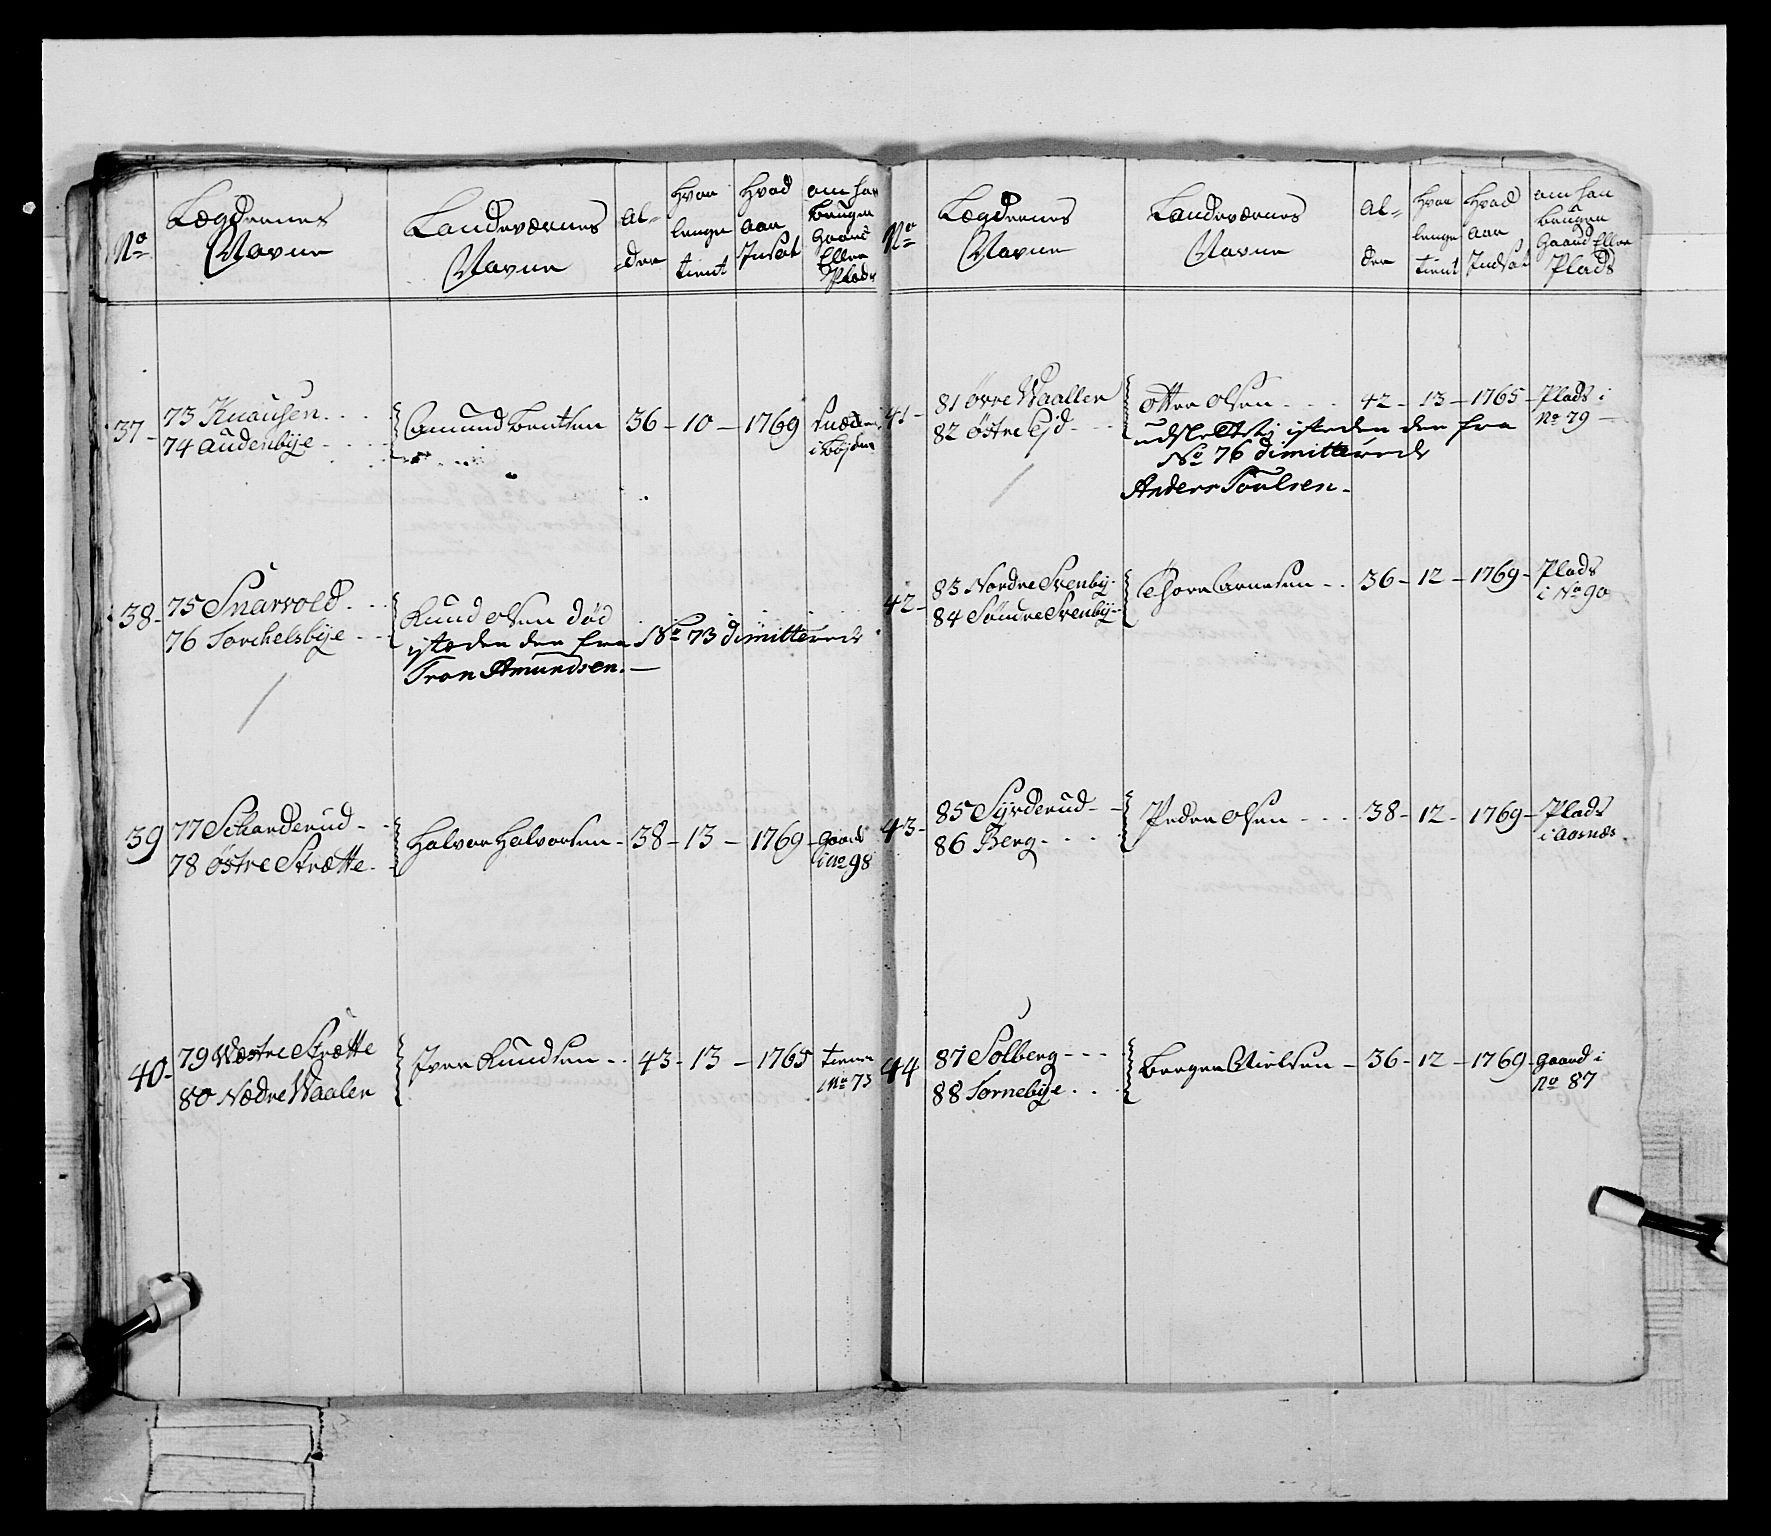 No
Lægdernes
Navne
Landeværnes
Navne
Al=
=der
Hvor
lenge
tient
Hvad
aar
Indsat
om han
bruger
Gaard
Eller
Plads
37- 73 Knausen. 74 Audenbÿe - Amund Bentsen 36 - 10 - 1769
i Bøjden
38- 75 Snarvold. 76 Torchelsbÿe - Knud Olsen død
isteden der fra No 73 dimitterede
Tron Amundsen. -
39 77 Scharderud - 78 Østre Strætte - Halvor Halvorsen - 38 - 13 - 1769 - Gaard
i No 98
40- 79 Wæstre Strætte 80 Nædre Waaler Iver Knudsen - 43 - 13 - 1765 tiener
i No 73
No
Lægdernes
Navne
Landeværnes
Navne
Al=
der
Hvor
lenge
tient
Hvad
aar
Indsat
om han
bruger
Gaard Eller
Plads
41- 81 Øvre Waaller 82 Østre Ejd - Otter Olsen - 42 - 13 - 1765 - Plads i
No 79 -
udslettet isteden der fra
No 76 dimitterede
Anders Poulsen -
42- 83 Nordre Svenbÿ - 84 Søndre Svenbÿ - Thore Arnesen - 36 - 12 - 1769 - Plads
i No 90
43- 85 Sÿrderud - 86 Berg - Peder Olsen - 38 - 12 - 1769 - Plads
i Aasnæs
44 87 Solberg - 88 Tornebÿe . Berger Nielsen - 36 - 12 - 1769 - Gaard i
No 87